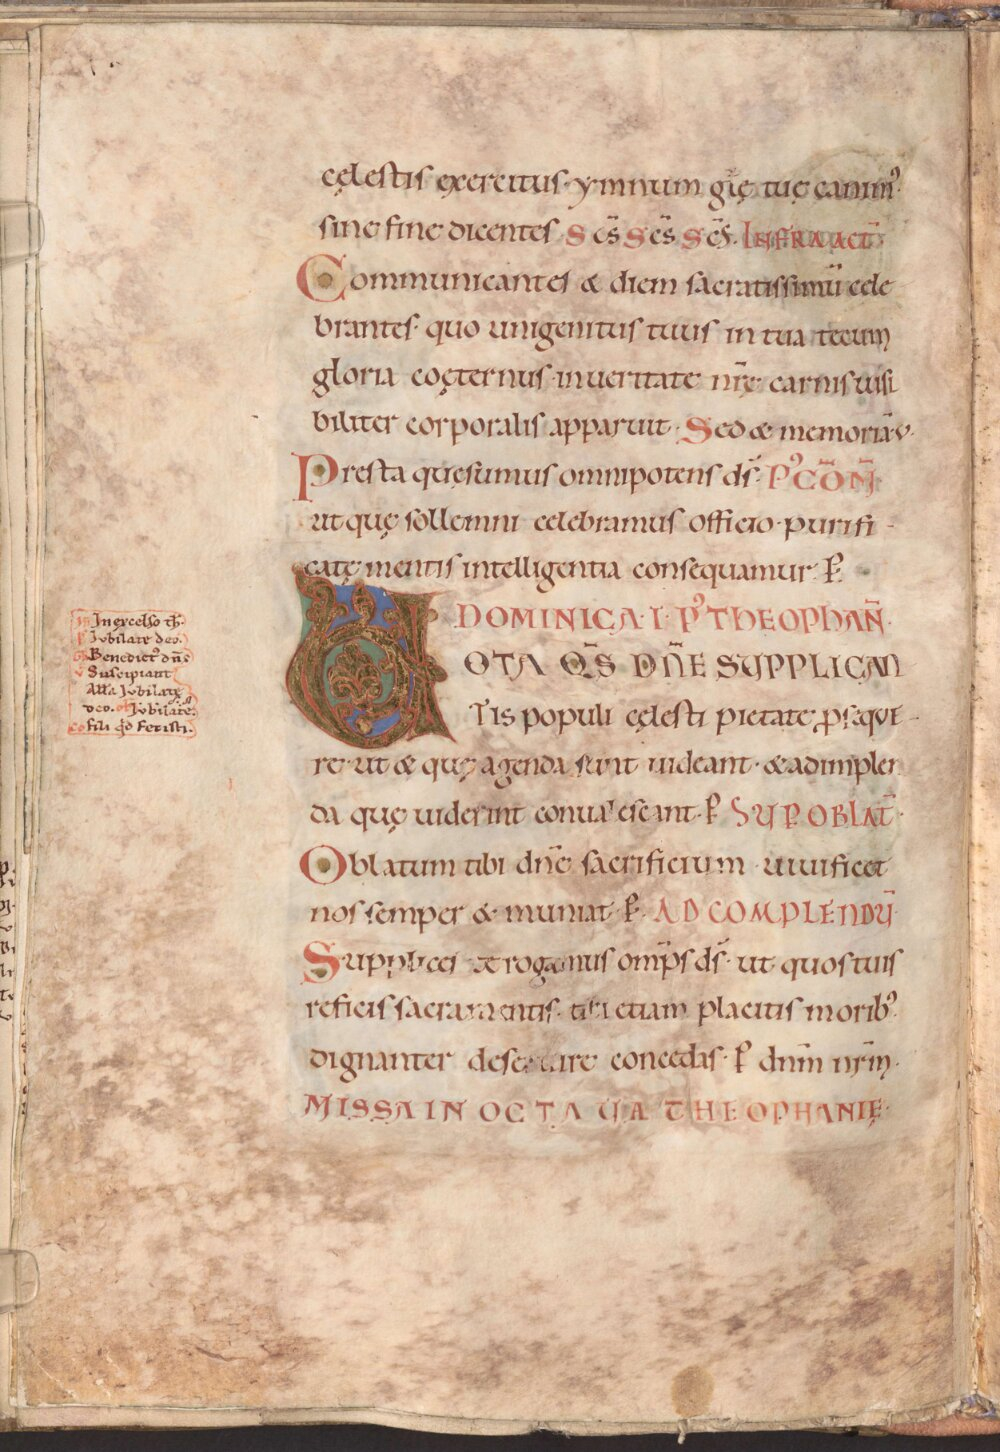 cęlestis exercitus· ymnum glę tuę canim᾽·
sine fine dicentes· Scs̄ Scs̄ Scs̄. INFRA ACT̄
Communicantes & diem sacratissimū cele
brantes· quo unigenitus tuus in tua tecum
gloria coęternus· in ueritate nrę̄ carnis uisi
biliter corporalis apparuit· Sed & memoriā·v·
Presta quesumus omnipotens ds̄· P᾽ CŌM̄
ut quę sollemni celebramus officio· purifi-
catę mentis intelligentia consequamur· P̄
DOMINICA· I· P᾽ THEOPHAN̄
VOTA QS̄ DN̄E SUPPLICAN
Tis populi cęlesti pietate ꝓseque-
re· ut & quę agenda sunt uideant· & ad implen
da quę uiderint conualescant· P̄ SUP OBLAT̄
Oblatum tibi dn̄e sacrificium· uiuificet
nos semper & muniat· P̄· AD COMPLENDŪ
Supplices te rogamus omp̄s ds̄· ut quos tuis
reficis sacramentis· tibi etiam placitis morib᾽·
dignanter deseruire concedas· P̄ dnm̄ nrm̄·
MISSA IN OCTAUA THEOPHANIĘ
In excelso th·
Jvbilate deo·
Benedict᾽ dn̄s
v Suscipiant
Alla Jvbilate
deo· of Jvbilate·
co Fili qd̄ fecisti·